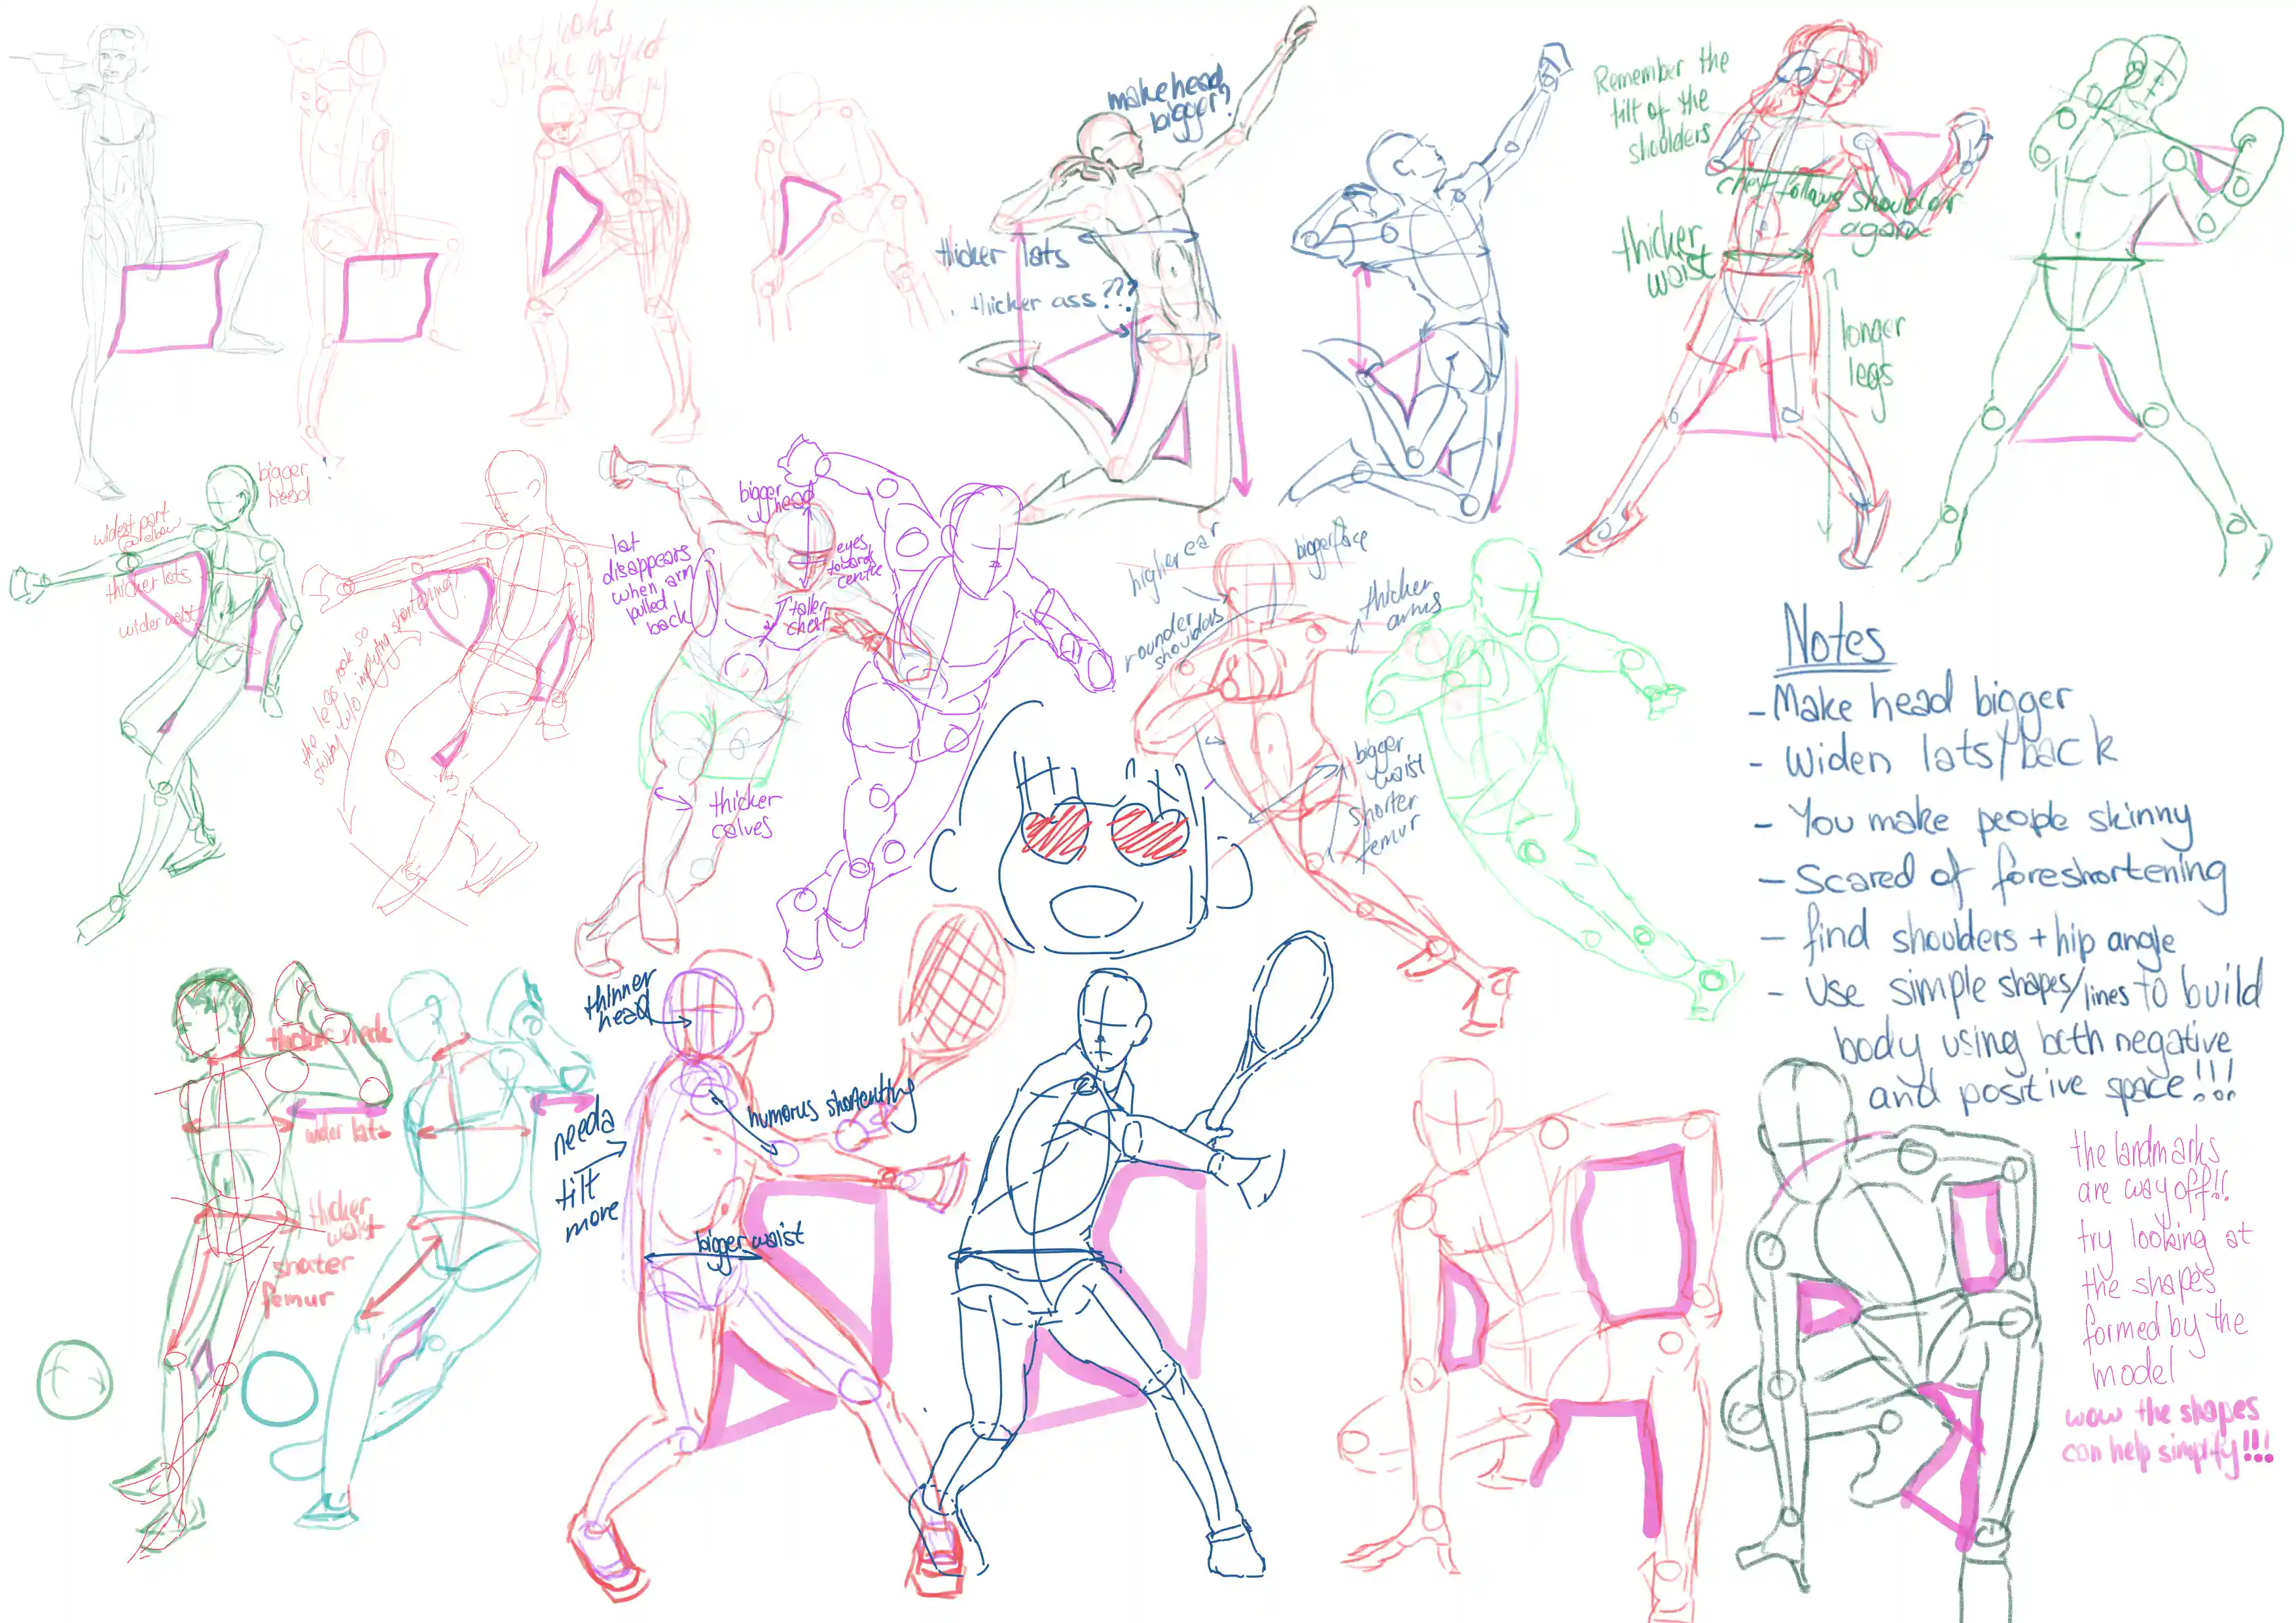 make head
bigger?
thicker lats
thicker ass???
Remember the
tilt of the
shoulders
chest follows shoulder
again
thicker
waist
longer
legs
bigger
head
widest part
@ elbow
thicker lats
wider waist
the legs look so
stubby w/o implying shortening?
lat
disappears
when arm
pulled
back
bigger
head
eyes
towards
centre
taller
chest
thicker
calves
higher ear
bigger face
rounder
shoulders
thicker
arms
bigger
waist
shorter
femur
Notes
- Make head bigger
- Widen lats/back
- You make people skinny
- Scared of foreshortening
- find shoulders + hip angle
- Use simple shapes/lines to build
body using both negative
and positive space!!!
thicker neck
wider lats
thicker
waist
shoter
femur
thinner
head
needa
tilt
more
humorus shortening
bigger waist
the landmarks
are way off!!
try looking at
the shapes
formed by the
model
wow the shapes
can help simplify!!!